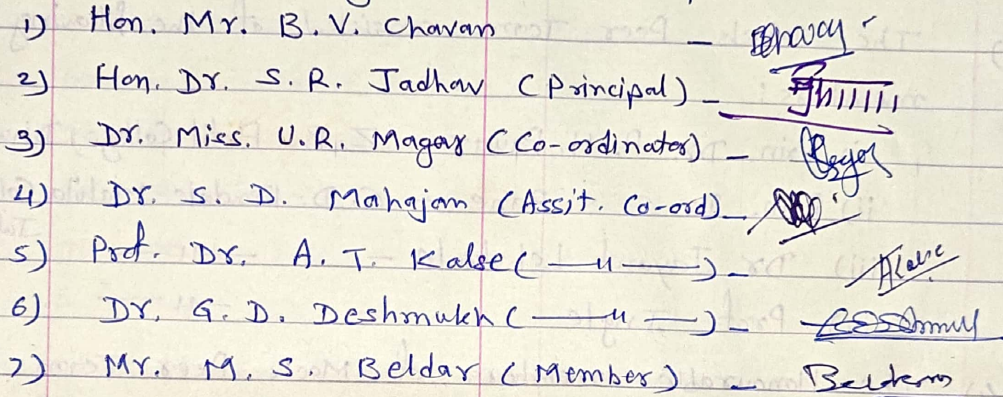 1) Hon. Mr. B. V. Chavan -
2) Hon. Dr. S. R. Jadhav (Principal) -
3) Dr. Miss. U. R. Magar (Co-ordinator) -
4) Dr. S. D. Mahajan (Assit. Co-ord) -
5) Prof. Dr. A. T. Kalse ( —〃— ) -
6) Dr. G. D. Deshmukh ( —〃— ) -
7) Mr. M. S. Beldar (Member) -